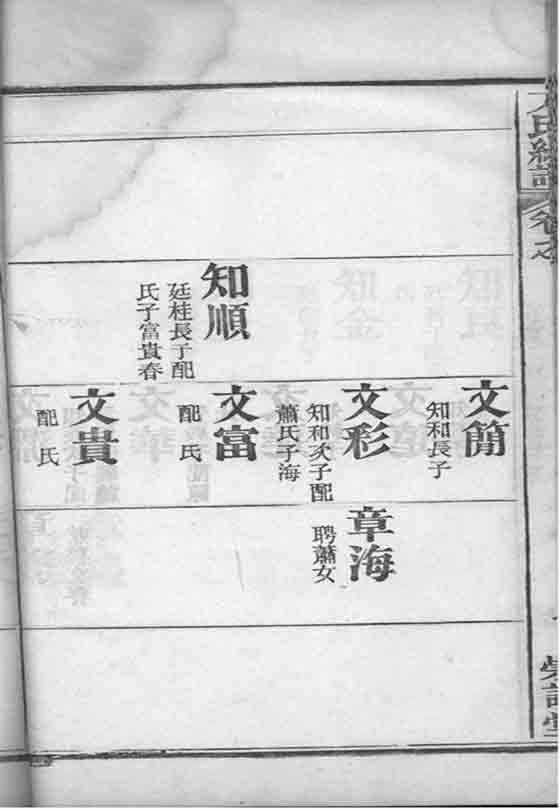 氏總譜
卷之
知順
廷桂長子配
氏子富貴春
文簡
知和長子
文彩
知和次子配
蕭氏子海
文富
配 氏
文貴
配 氏
章海
聘蕭女